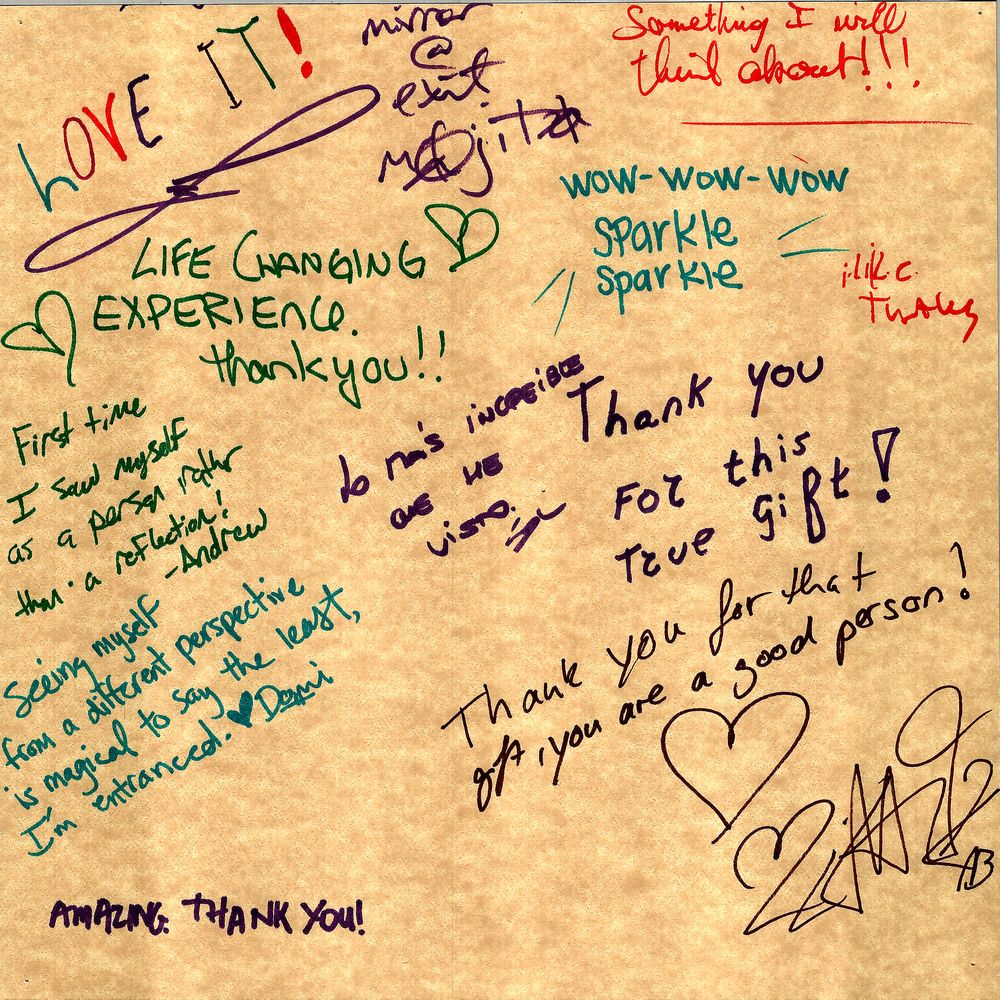 LOVE IT!
mirror
@
exit.
Something I will
think about!!!
WOW-WOW-WOW
sparkle
sparkle
i like
LIFE CHANGING
EXPERIENCE.
thank you!!
First time
I saw myself
as a person rather
than a reflection!
-Andrew
Lo más increible
que he
visto.
Thank you
For this
True Gift!
Seeing myself
from a different perspective
is magical to say the least,
I'm entranced. ♥ Domi
Thank you for that
gift, you are a good person!
AMAZING. THANK YOU!